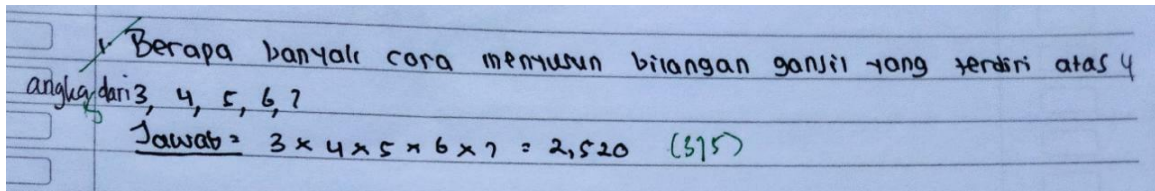 1. Berapa banyak cara menyusun bilangan ganjil yang terdiri atas 4
angka dari 3, 4, 5, 6, 7
Jawab = 3 x 4 x 5 x 6 x 7 = 2,520 (375)